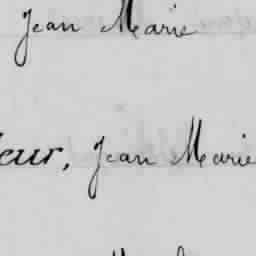 Jean Marie
eur, Jean Marie